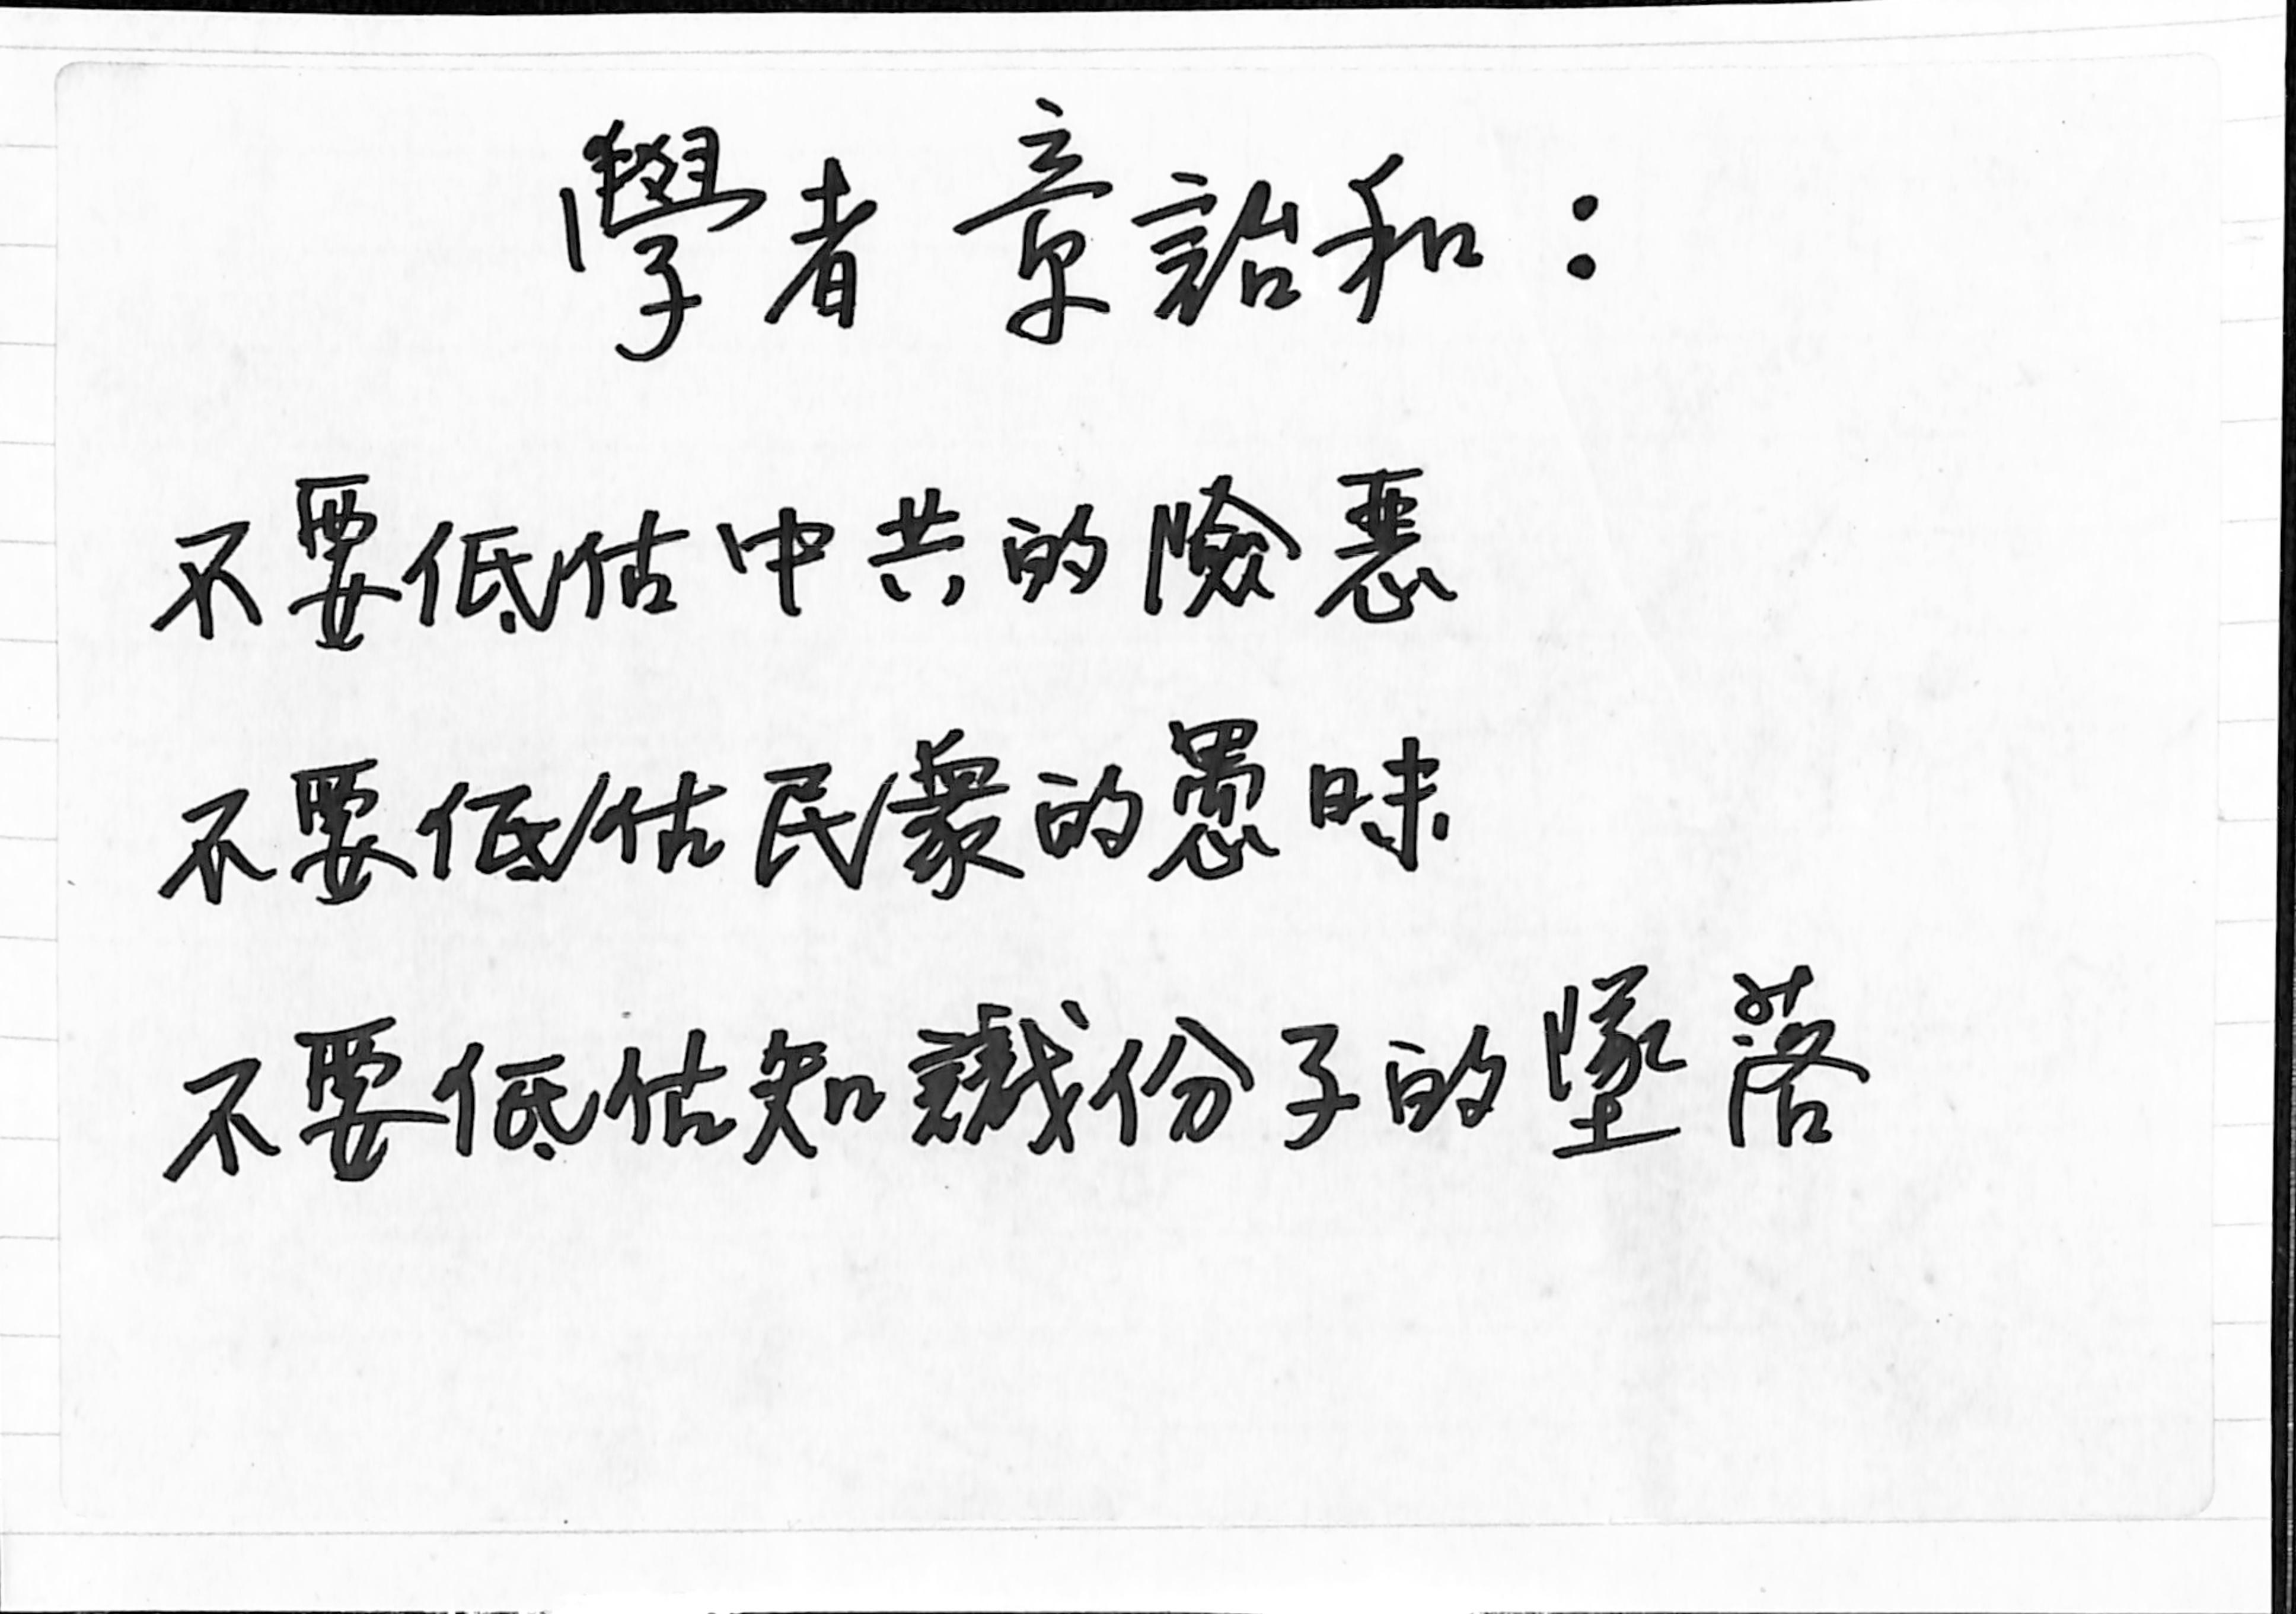 學者 章詒和：
不要低估中共的險惡
不要低估民衆的愚昧
不要低估知識份子的墜落